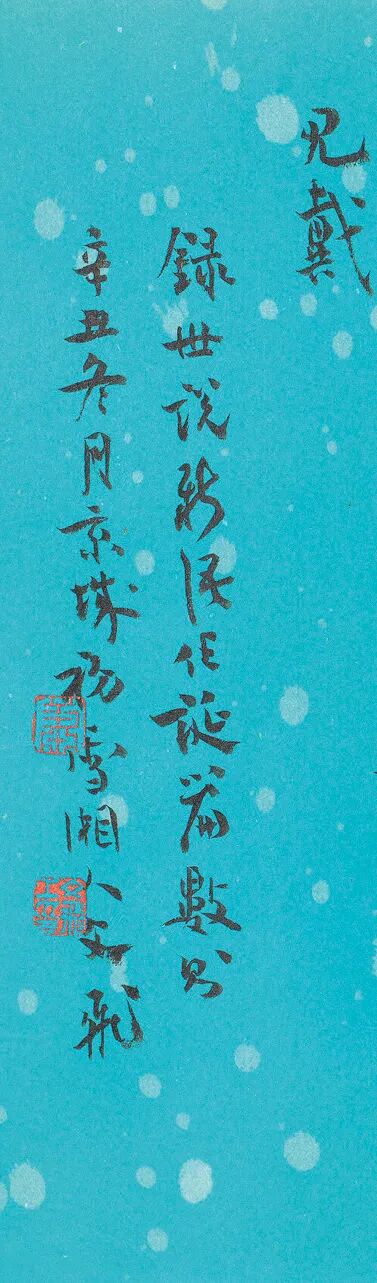 見戴
錄世說新語任誕篇數則
辛丑冬月京城初雪湘人文飛